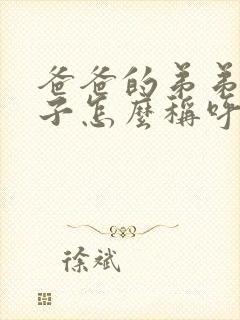 爸爸的弟弟
子怎麼稱呼
徐斌